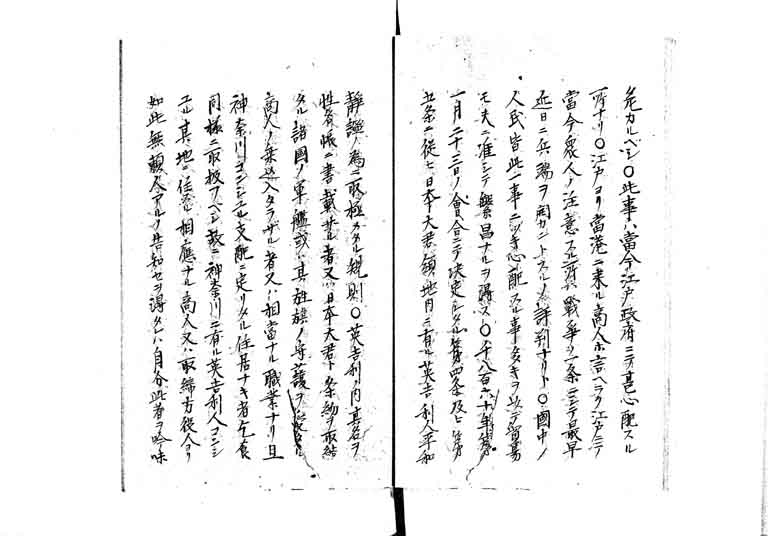 タルベシ〇此事ハ當今江戸政府ニテ甚心配スル
所ナリ〇江戸ヨリ當港ニ来ル商人ホ言ヘラク江戸ニテ
當今衆人ノ注意スル所ハ戦争ノ一条ニシテ最早
近日ニ兵端ヲ開カントスルノ評判ナリト〇國中ノ
人民皆此一事ニツキ心配スル事多キヲ以テ貿易
モ夫ニ准シテ繁昌ナルヲ得ス〇千八百六十年第
一月二十三日ノ會合ニテ决定シタル第四条及ヒ第
五条ニ従ヒ日本大君領地内ニ有ル英吉利人平和
静謐ノ為ニ取極メタル規則〇英吉利ノ内其名ヲ
性名帳ニ書載サル者又ハ日本大君ト条約ヲ取結
タル諸國ノ軍艦或ハ其旌旗ノ守護ヲ受タル
商人ノ乗込入タラザル者又ハ相當ナル職業ナリ且
神奈川コンシユル支配ニ定リタル住居ナキ者乞食
同様ニ取扱フベシ故ニ神奈川ニ有ル英吉利人コンシ
ユル其地ニ住スル相應ナル商人又ハ取締方役人ヨリ
如此無頼人アルノ告知セヲ得タレハ自分此者ヲ吟味